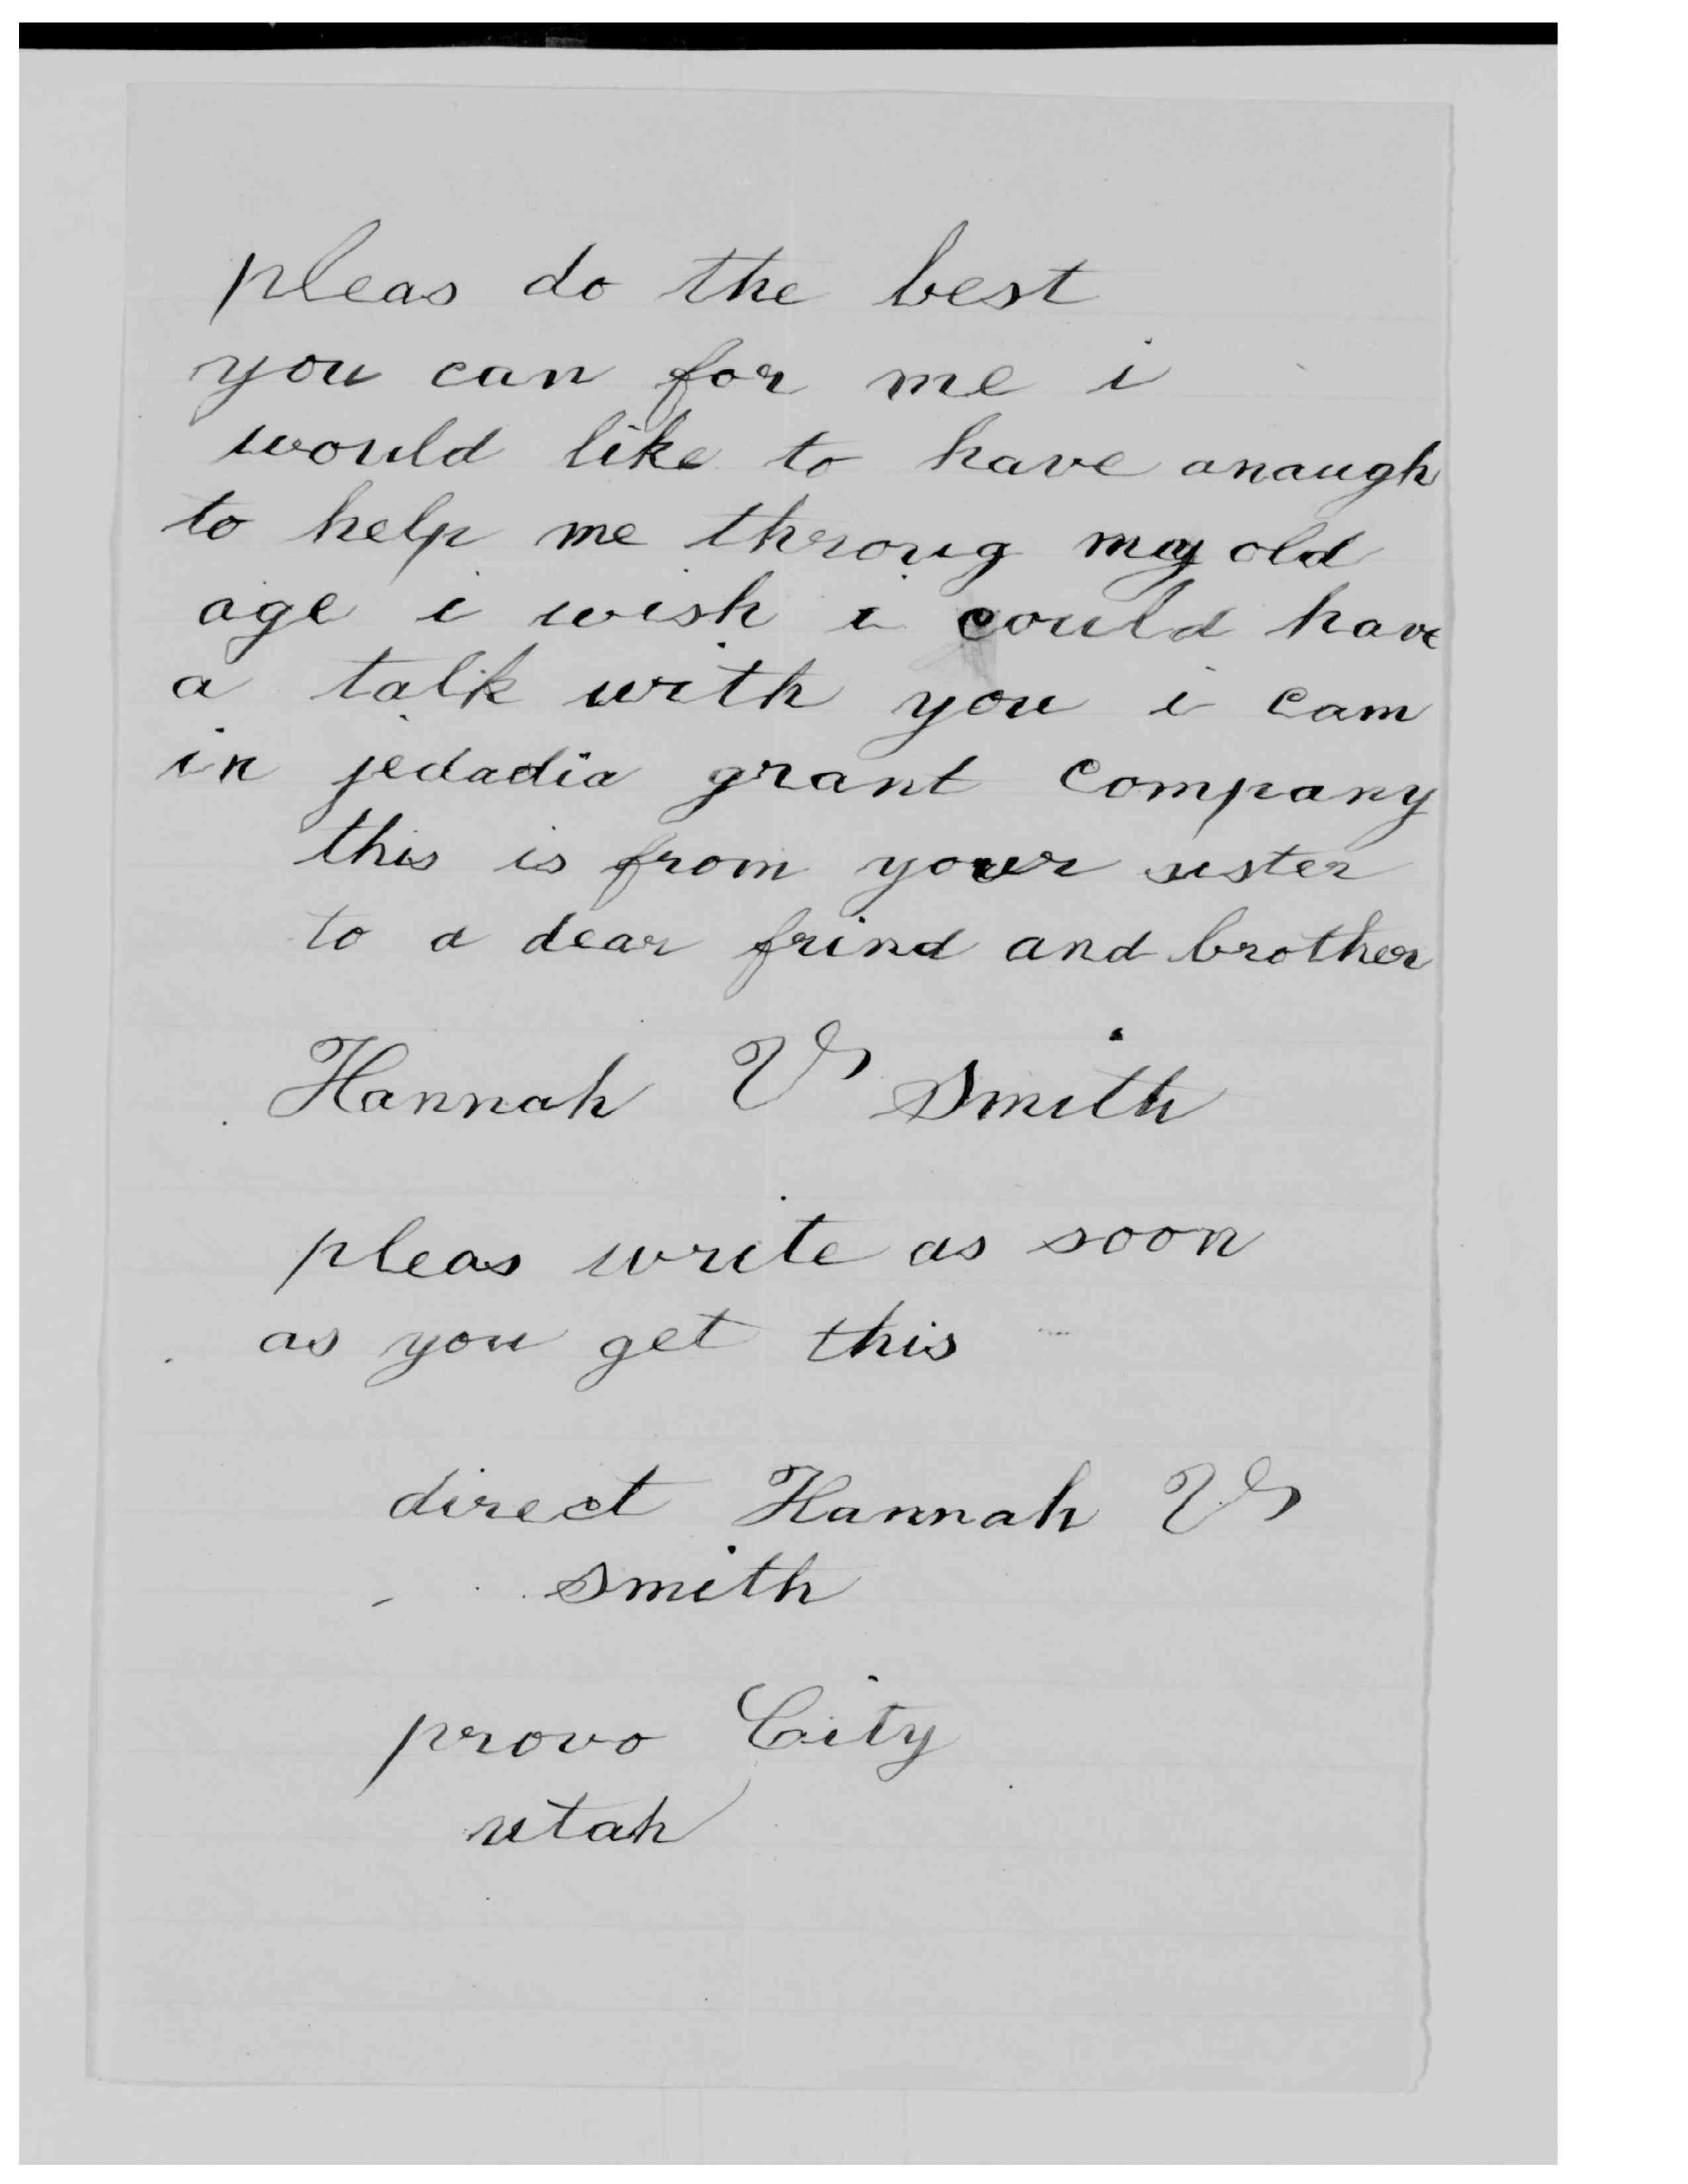 pleas do the best
you can for me i
would like to have anaugh
to help me throug my old
age i wish i could have
a talk with you i cam
in jedadia grant company
this is from your sister
to a dear frind and brother
Hannah V Smith
pleas write as soon
as you get this
direct Hannah V
Smith
provo City
utah